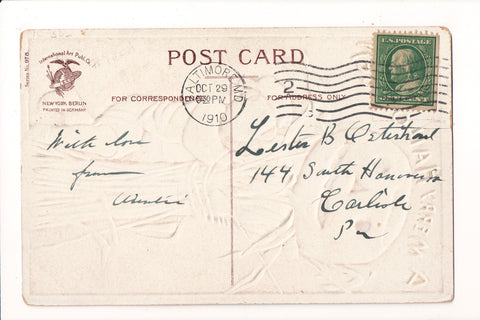 Series No. 978
International Art Publ. Co.
NEW YORK BERLIN
PRINTED IN GERMANY
POST CARD
FOR CORRESPONDENCE
FOR ADDRESS ONLY
BALTIMORE, MD.
OCT 29
PM
1910
2
U.S. POSTAGE
With love
from
Lester B
144 South Hanover
Carlisle
Pa